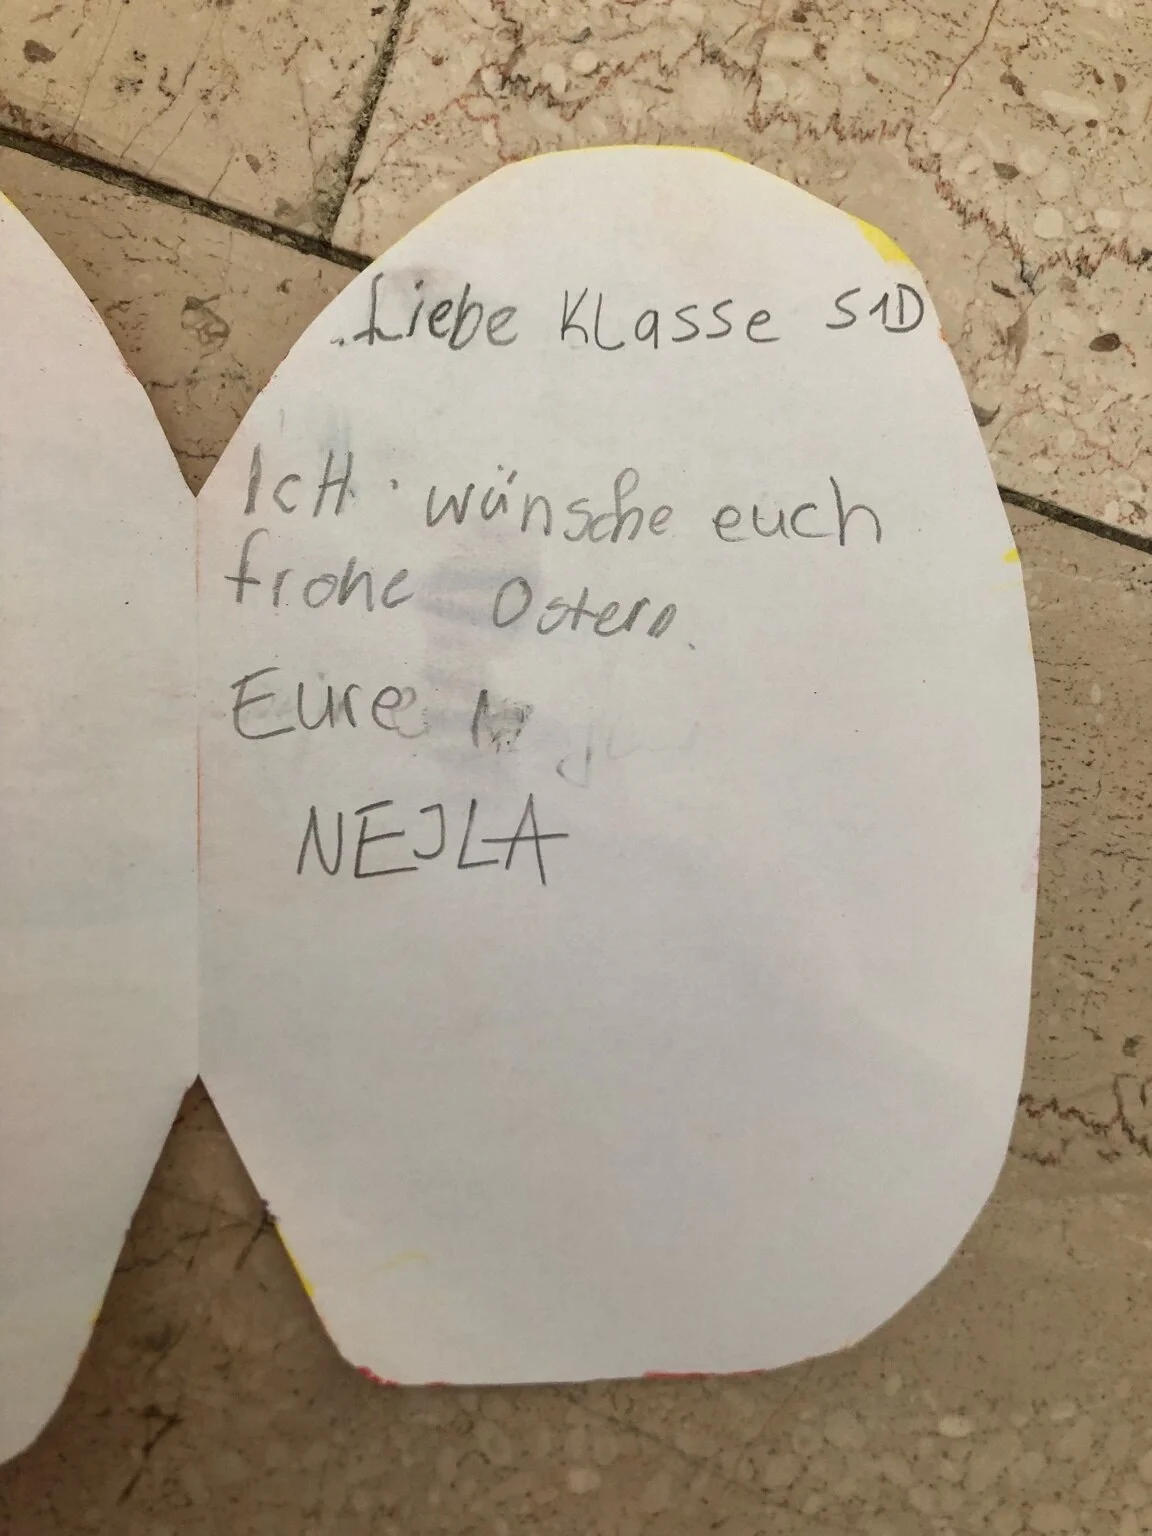 Liebe Klasse S1D
IcH wünsche euch
frohe Ostern.
Eure
NEJLA